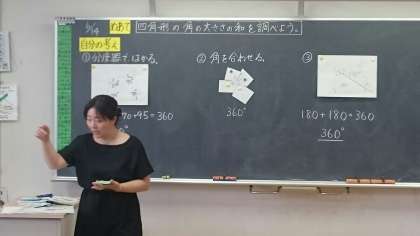 9/4 めあて 四角形の角の大きさの和を調べよう。
自分の考え
①分度器で、はかる。
②角を合わせる。
③
70+95=360
360°
180+180=360
360°